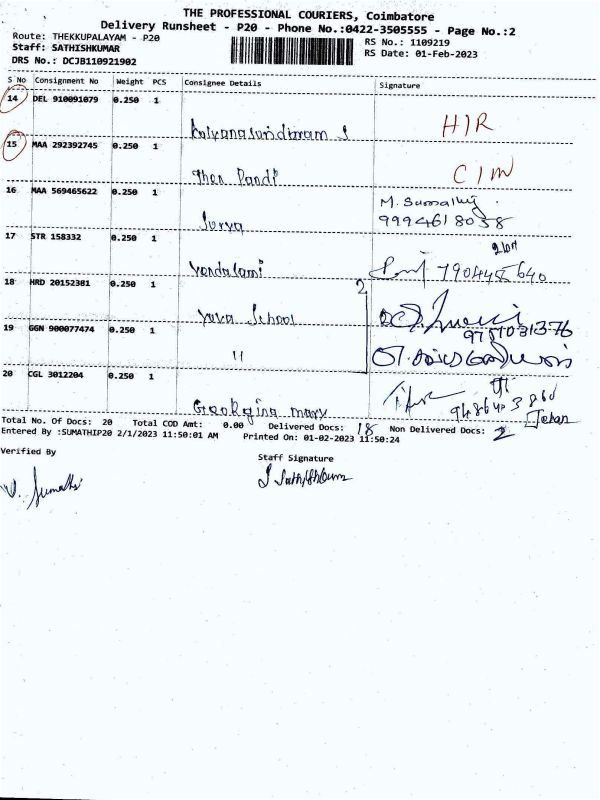 THE PROFESSIONAL COURIERS, Coimbatore
Delivery Runsheet - P20 - Phone No.:0422-3505555 - Page No.:2
Route: THEKKUPALAYAM - P20
RS No.: 1109219
Staff: SATHISHKUMAR
RS Date: 01-Feb-2023
DRS No.: DCJB110921902
S No Consignment No Weight PCS Consignee Details Signature
14 DEL 910091079 0.250 1
Kalyanasundaram S HIR
15 MAA 292392745 0.250 1
Then Pandi CIW
16 MAA 569465622 0.250 1 M. Sumathy
Surya 9994618038
17 STR 158332 0.250 1
Vendalami
18 HRD 20152381 0.250 1 2
Yuva School 9751031376
19 GGN 900077474 0.250 1
11
20 CGL 3012204 0.250 1
Georgina mary
Total No. Of Docs: 20 Total COD Amt: 0.00 Delivered Docs: 18 Non Delivered Docs: 2
Entered By :SUMATHIP20 2/1/2023 11:50:01 AM Printed On: 01-02-2023 11:50:24
Verified By Staff Signature
V. Sumathi S Sathishkumar